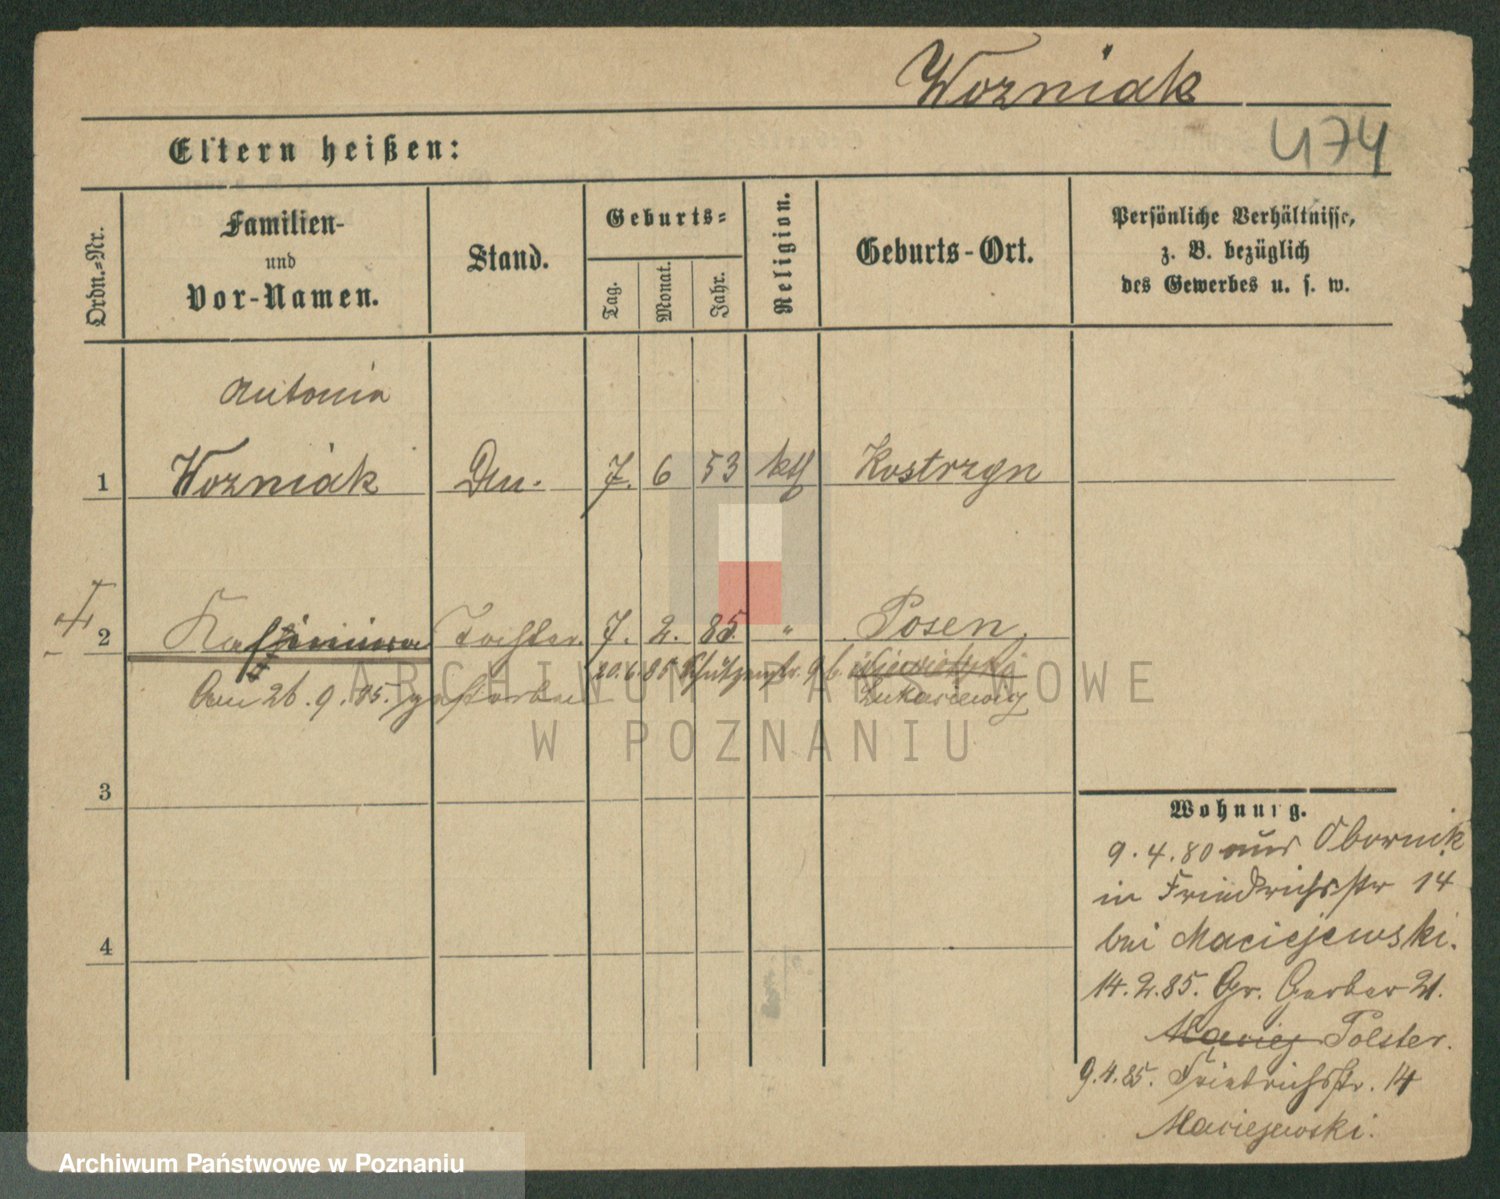 Wozniak
Eltern heißen:
474
Ordn.-Nr.
Familien-
und
Vor-Namen.
Stand.
Geburts-
Tag.
Monat.
Jahr.
Religion.
Geburts-Ort.
Persönliche Verhältnisse,
z. B. bezüglich
des Gewerbes u. s. w.
Antonia
1 Wozniak 7. 6 53 kth Kostrzyn
2 Kasimira Tochter. 7. 2. 85. " Posen
20.6.85 Schützenstr. 9 b.
Am 26.9.85. gestorben Lukasiewicz
3
4
Wohnung.
9.4.80 aus Obornik
in Friedrichsstr 14
bei Maciejewski.
14.2.85. Gr. Gerber 21.
Maciej Polster.
9.4.85. Friedrichsstr. 14
Maciejewski.
ARCHIWUM PAŃSTWOWE
W POZNANIU
Archiwum Państwowe w Poznaniu